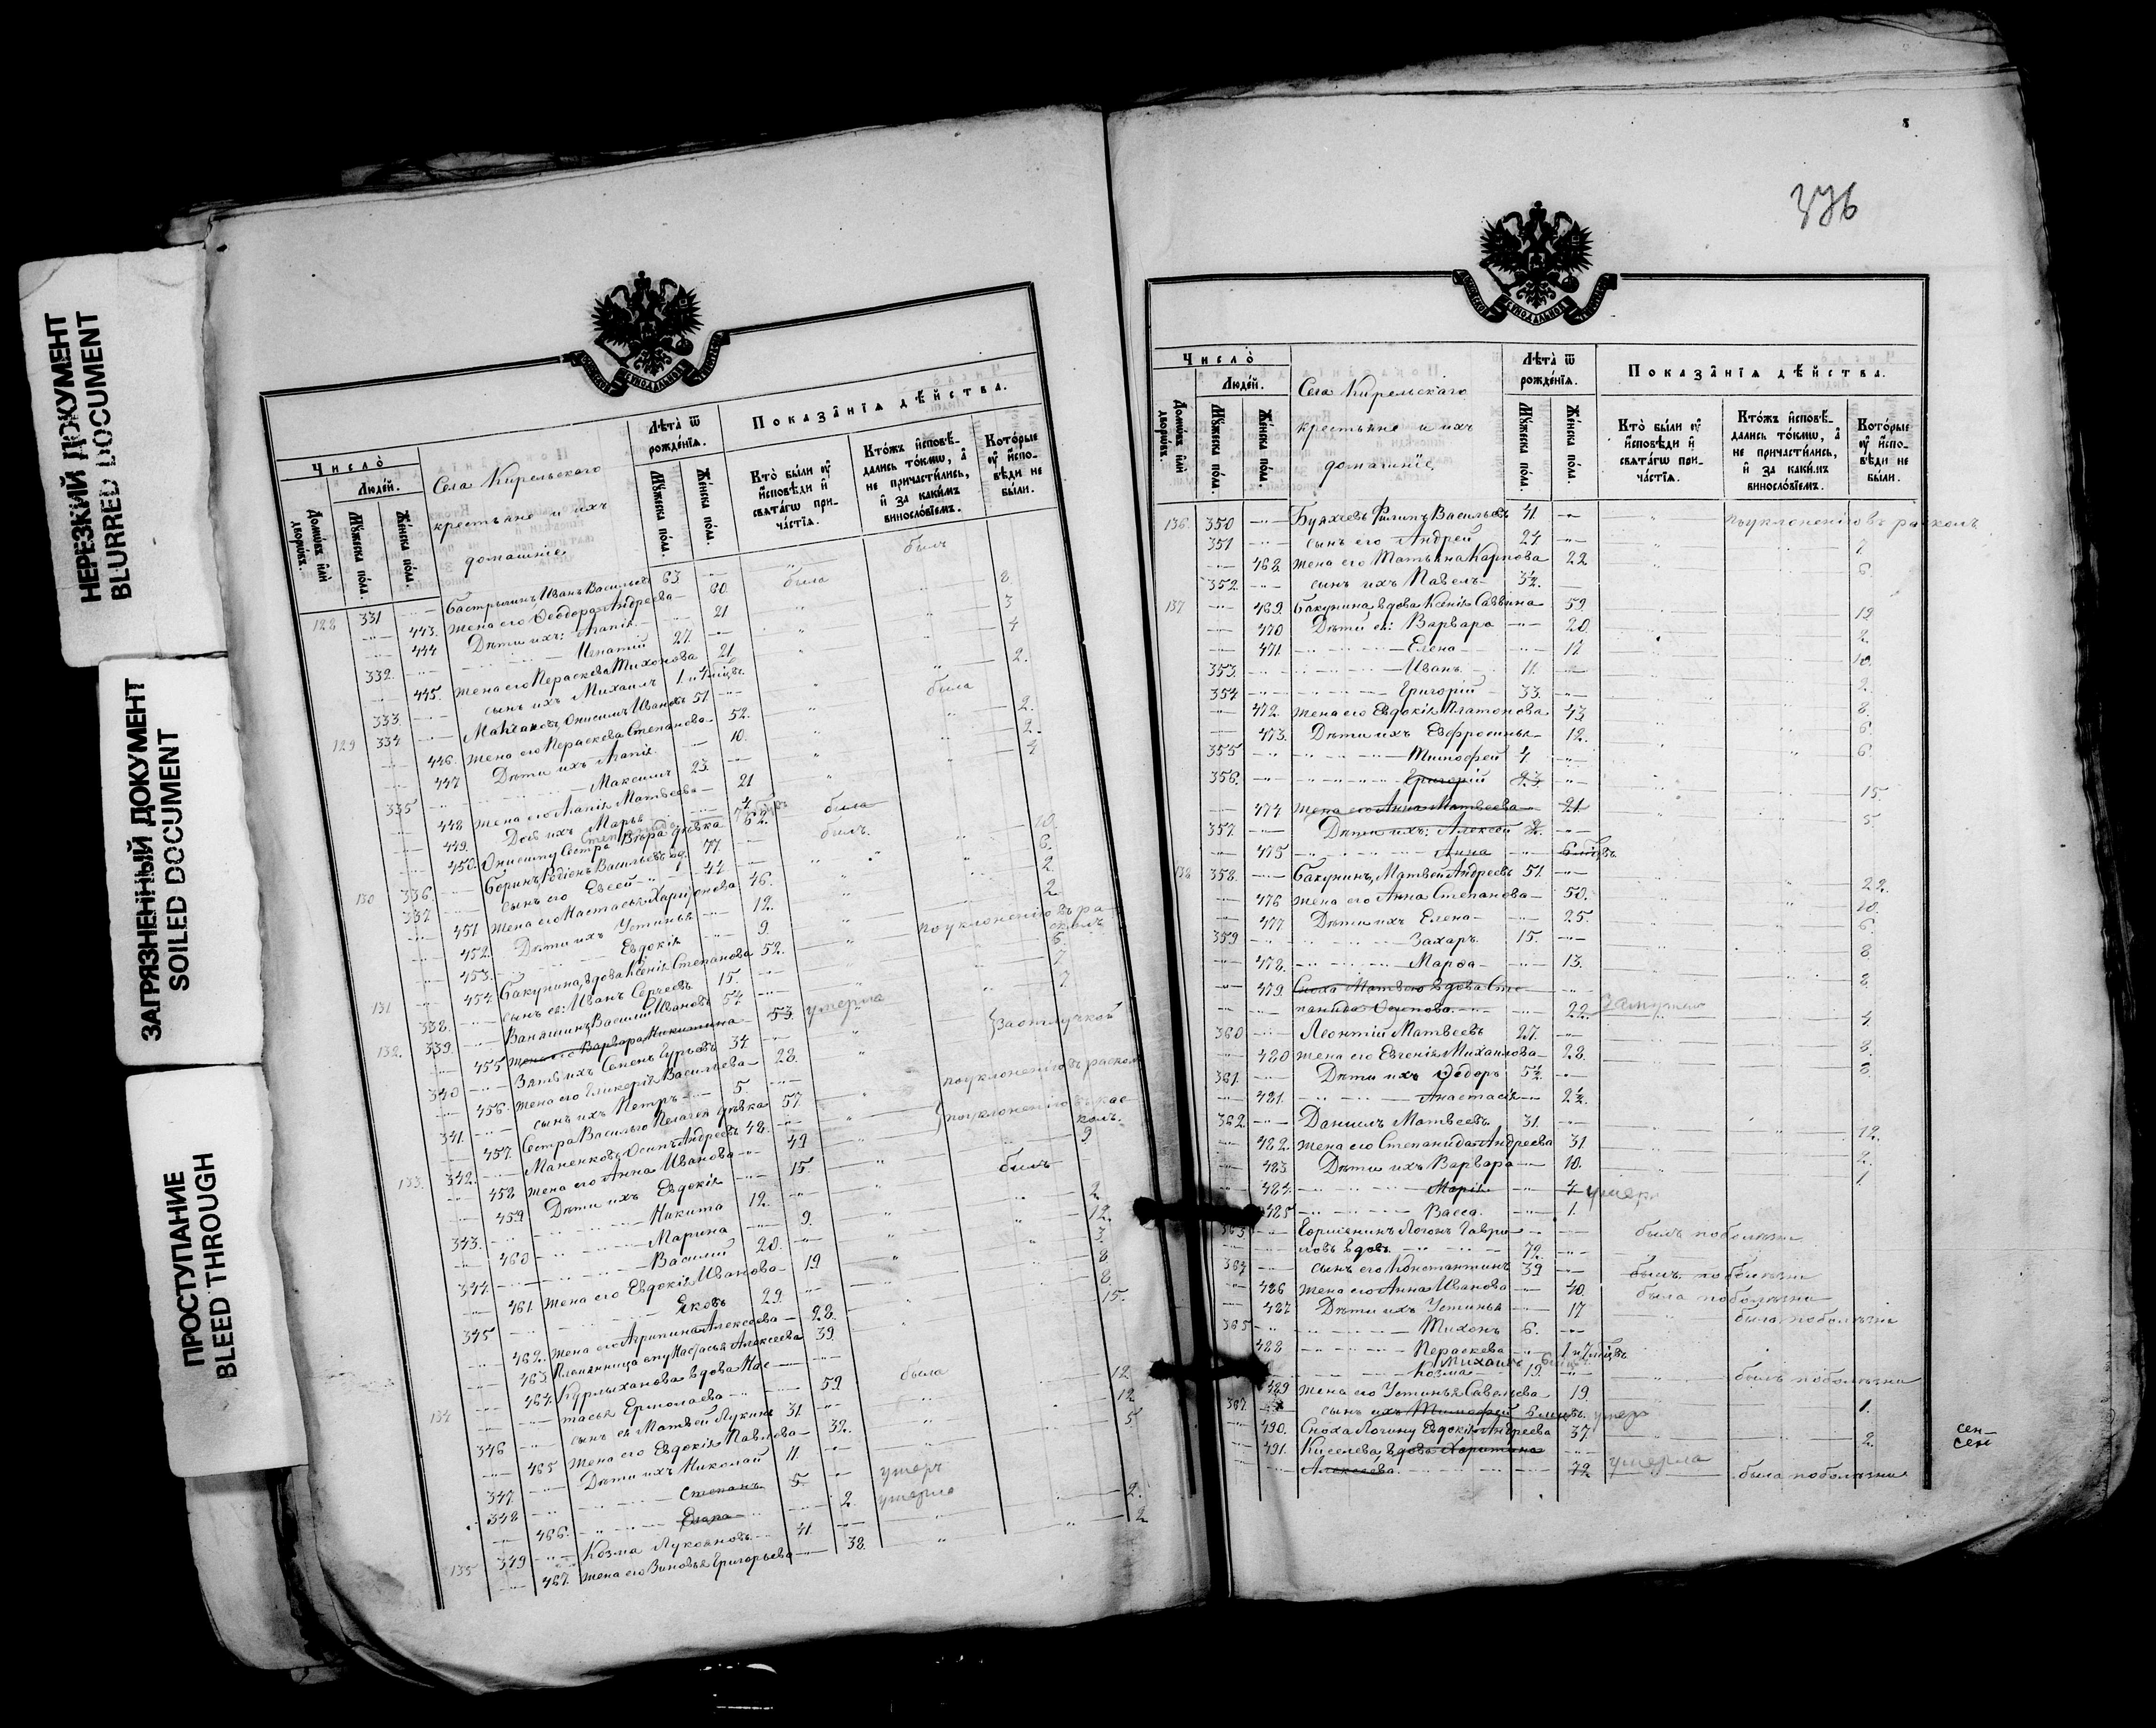 НЕРЕЗКИЙ ДОКУМЕНТ
BLURRED DOCUMENT
ЗАГРЯЗНЕННЫЙ ДОКУМЕНТ
SOILED DOCUMENT
ПРОСТУПАНИЕ
BLEED THROUGH
Число̀
Людей.
Домѡвъ илѝ дворѡвъ.
Мꙋжеска пола.
Женска пола.
Села Кирельскаго
крестьяне и ихъ
домашніе.
Лѣта̀ ѿ рожденїѧ.
Мꙋжеска пола.
Женска пола.
Показанїѧ дѣйства.
Кто̀ были ᲂу̓ исповѣди и свѧтагѡ причастїѧ.
Ктожъ исповѣдались токмѡ, а не причастились, и за какимъ винословїемъ.
Которые ᲂу̓ исповѣди не были.
128 331 Бастрыгинъ Иванъ Васильевъ 63 былъ
443. Жена его Ѳеодора Андреева 60. была
444 Дѣти ихъ: Агапія 21 8.
332. Игнатій 27. 3
445. Жена его Параскева Тихонова 21 4
333. сынъ ихъ Михаилъ 1 и 4 мѣсцв. 2.
129 334 Онисимъ Ивановъ 51. была
446. Жена его Параскева Степанова 52. 2.
447 Дѣти ихъ Агапія 10. 2.
335 Максимъ 23. 4
448 Жена его Агапія Матвеева 21
449. Дочь ихъ Марья 4
450. Онисиму сестра Вѣра дѣвка 62. была
130 336. Родіонъ Васильевъ вд. 77. былъ. 10.
337 сынъ его Евсей 44 6.
451 Жена его Настасья Харитонова 46. 2
452. Дѣти ихъ Устинья 12. 2
453. Евдокія 9.
131 454 Бакунина, вдова Ксенія Степанова 52. по уклоненію въ расколъ
338. сынъ ея: Иванъ Сергеевъ 15. 6.
132. 339. Ваняшинъ Василій Ивановъ 54 7
455 Жена его Варвара Никитина 53. умерла 7
340 Зять ихъ Семенъ Гурьевъ 34
456. Жена его Гликерія Васильева 28. за отлучкой
341. сынъ ихъ Петръ 5.
457. Сестра Василью Пелагея дѣвка 57. по уклоненію въ расколъ
133. 342. Маненковъ Осипъ Андреевъ 48. по уклоненію въ расколъ.
458 Жена его Анна Иванова 49
459 Дѣти ихъ Евдокія 15. 9
343. Никита 12. былъ
460 Марина 9.
344. Василій 20. 2
461. Жена его Евдокія Иванова 19 12.
345 Яковъ 29. 3.
462. Жена его Агрипина Алексеева 28. 8
463. Племянница ему Настасья Алексеева 39. 8.
134 464. Курлыханова вдова Нас 15.
тасья Ермолаева 59. была
346 сынъ ея Матвей Лукинъ 31. 12
465 Жена его Евдокія Павлова 32. 12
347. Дѣти ихъ Николай 11. 5
348 Степанъ 5. умеръ
466. 2. умерла
135 349 Козма Лукояновъ 41. 2.
467. Жена его Зиновья Григорьева 38. 2
376
Число̀
Людей.
Домѡвъ илѝ дворѡвъ.
Мꙋжеска пола.
Женска пола.
Села Кирельскаго
крестьяне и ихъ
домашніе.
Лѣта̀ ѿ рожденїѧ.
Мꙋжеска пола.
Женска пола.
Показанїѧ дѣйства.
Кто̀ были ᲂу̓ исповѣди и свѧтагѡ причастїѧ.
Ктожъ исповѣдались токмѡ, а не причастились, и за какимъ винословїемъ.
Которые ᲂу̓ исповѣди не были.
136. 350 Филипъ Васильевъ 41. по уклоненію въ расколъ
351 сынъ его Андрей 24
468 Жена его Татьяна Карпова 22 7
352. сынъ ихъ Павелъ 3½. 6
137 469. Бакунина, вдова Ксенія Саввина 59.
470 Дѣти ея: Варвара 20. 12
471. Елена 17 2
353. Иванъ 11. 10.
354 Григорій 33. 2.
472. Жена его Евдокія Платонова 43 8
473. Дѣти ихъ Евфросинья 12. 6
355 Тимофей 4 6
356. Григорій 23.
474 Жена его Анна Матвеева 21. 15
357. Дѣти ихъ: Алексей 2. 5
475 Анна 6 мѣсцвъ
138 358. Бакунинъ, Матвей Андреевъ 51.
476 Жена его Анна Степанова 50. 22.
477 Дѣти ихъ Елена 25. 10.
359 Захаръ 15. 6
478. Марѳа 13. 8
479. Сноха Матвею вдова Сте 8
панида Осипова 22. Замужемъ
360 Леонтій Матвеевъ 27. 4
480 Жена его Евгенія Михаилова 28. 8.
361. Дѣти ихъ Ѳедоръ 5½. 3.
481. Анастасія 2½.
362. Даніилъ Матвеевъ 31.
482. Жена его Степанида Андреева 31 12.
483 Дѣти ихъ Варвара 10. 2.
484. Марія 4 умерла 1
485 Васса 1.
363 Логинъ Гаври былъ по болѣзни
ловъ вдовъ 72.
364 сынъ его Константинъ 39 былъ по болѣзни
486 Жена его Анна Иванова 40. была по болѣзни
487 Дѣти ихъ Устинья 17 была по болѣзни
365 Тихонъ 6.
488 Параскева 1 и 7 мѣсцвъ
Михаилъ
Козма 19. былъ по болѣзни
489 Жена его Устинья Савельева 19
367 сынъ ихъ Тимофей 6 мѣсцвъ. умеръ 1.
490. Сноха Логину Евдокія Андреева 37 2.
491. Киселева, вдова Харитина
Алексеева 72 умерла была по болѣзни
сен–
сен